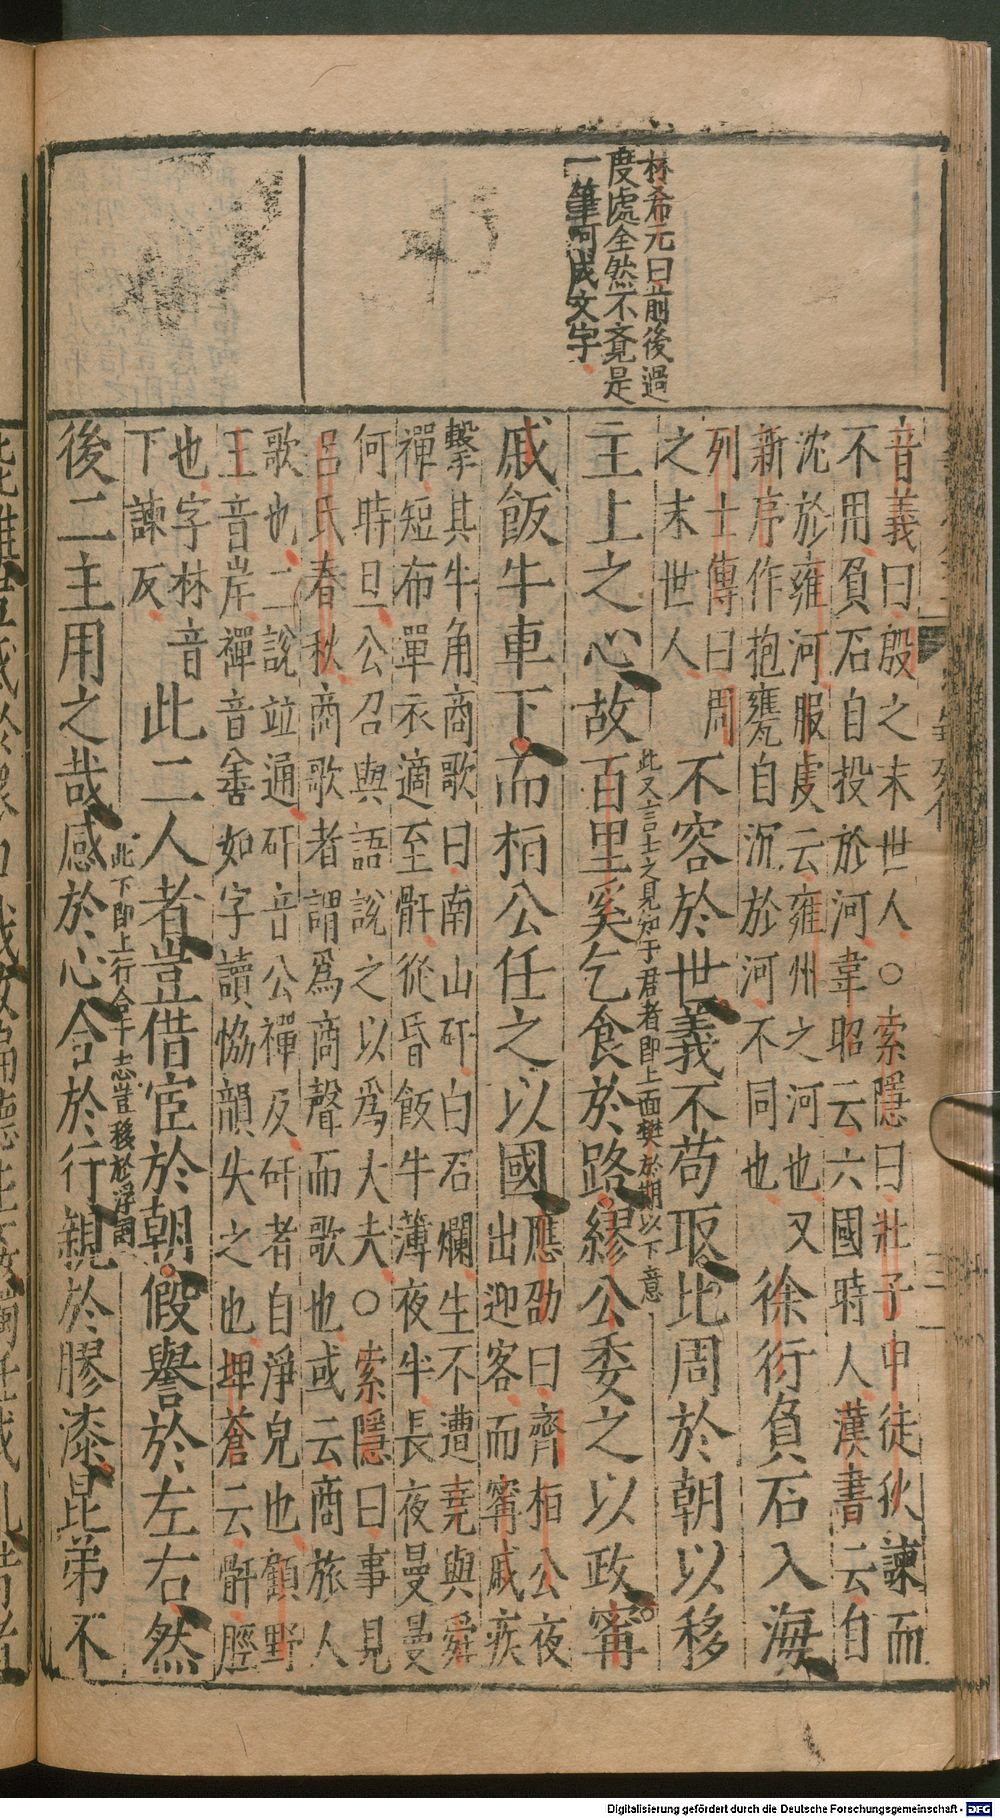 林希元曰前後過
度處全然不竟是
一筆呵成文字
音義曰殷之末世人○索隱曰莊子申徒狄諫而
不用負石自投於河韋昭云六國時人漢書云自
沈於雍河服虔云雍州之河也又
新序作抱甕自沉於河不同也
徐衍負石入海
列士傳曰周
之末世人
不容於世義不苟取比周於朝以移
主上之心
此又言士之見知于君者即上面樊於期以下意
故百里奚乞食於路繆公委之以政甯
戚飯牛車下而桓公任之以國
應劭曰齊桓公夜
出迎客而甯戚疾
擊其牛角商歌曰南山矸白石爛生不遭堯與舜
禪短布單衣適至骭從昏飯牛薄夜半長夜曼曼
何時旦公召與語說之以為大夫○索隱曰事見
呂氏春秋商歌者謂為商聲而歌也或云商旅人
歌也二說竝通矸音公禪反矸者白淨皃也顧野
王音岸禪音善如字讀恊韻失之也埤蒼云骭脛
也字林音
下諫反
此二人者豈借宦於朝假譽於左右然
此下即上行合于志豈移於浮詞
後二主用之哉感於心合於行親於膠漆昆弟不
Digitalisierung gefördert durch die Deutsche Forschungsgemeinschaft - DFG